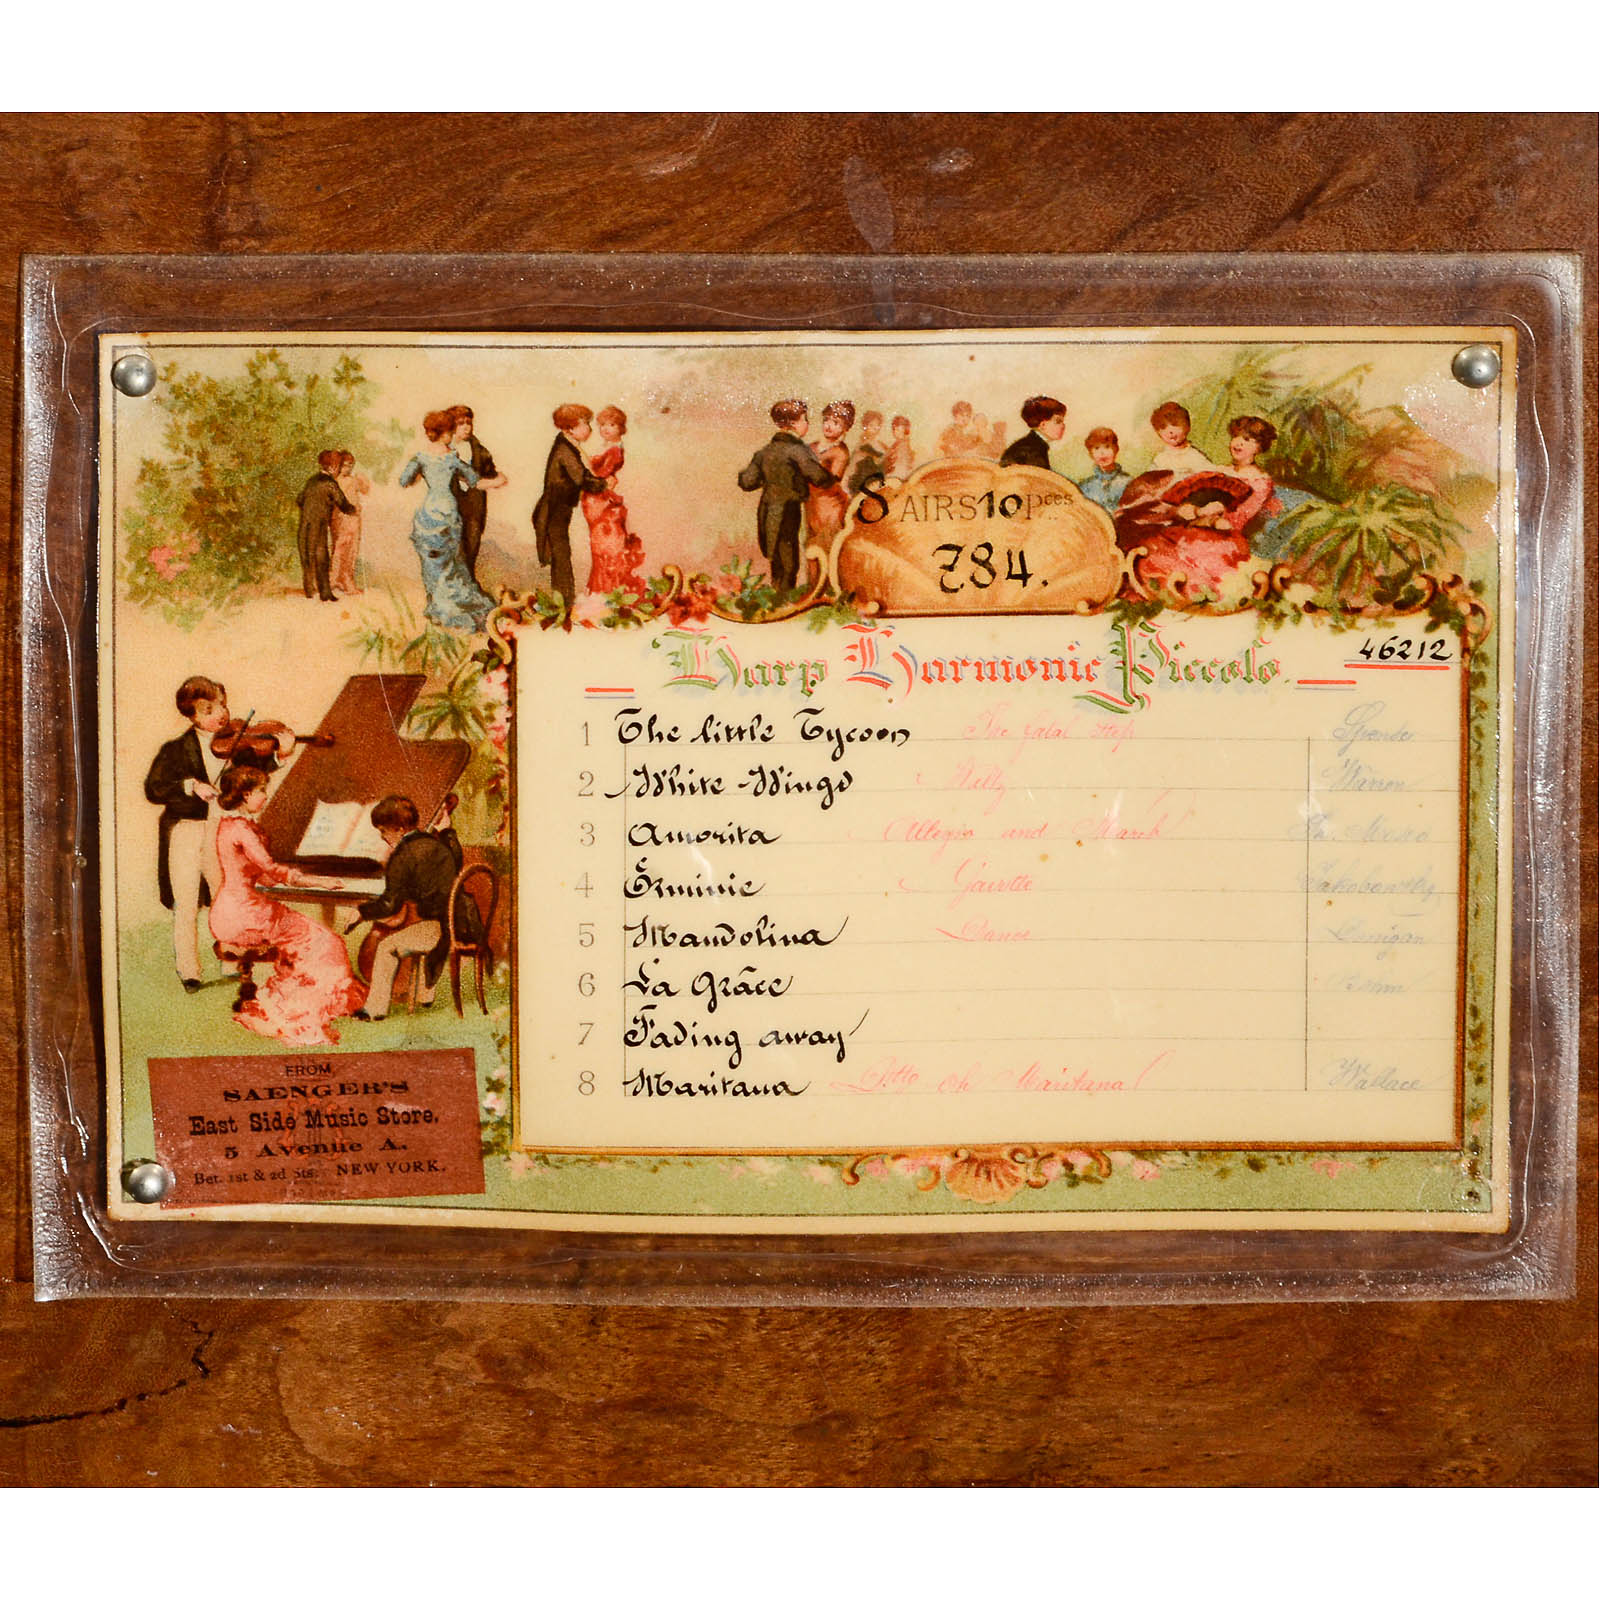 8 AIRS 10 Pces
784.
Harp Harmonic Piccolo.
46212
1 The little Tycoon The fatal step Spenser
2 White-Wings Waltz Warren
3 Amorita Allegro and March
4 Erminie Gavotte Jakobowsky
5 Mandolina Dance
6 La Grâce Bohm
7 Fading away
8 Maritana Wallace
FROM
SAENGER'S
East Side Music Store,
5 Avenue A.
Bet. 1st & 2d Sts. NEW YORK.